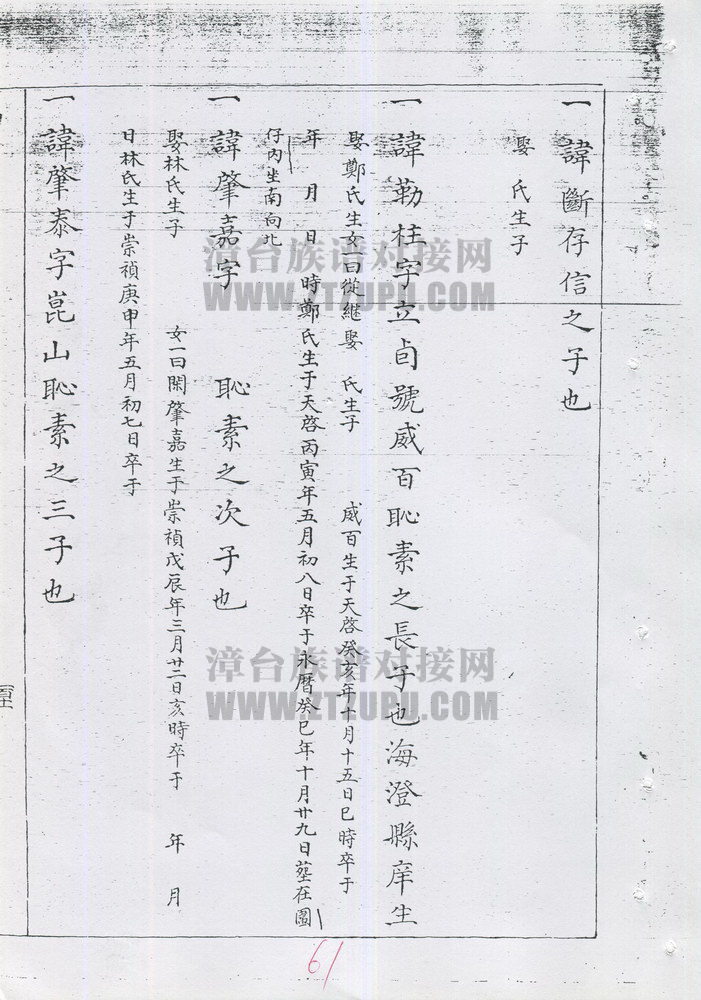 一諱斷存信之子也
娶 氏生子
一諱勒柱字立卣號威百恥素之長子也海澄縣庠生
娶鄭氏生女一曰從継娶 氏生子 威百生于天啓癸亥年十月十五日巳時卒于
年 月 日 時鄭氏生于天啓丙寅年五月初八日卒于永曆癸巳年十月廿九日塟在圆
仔内坐南向北
一諱肇嘉字 恥素之次子也
娶林氏生子 女一曰閑肇嘉生于崇禎戊辰年三月廿二日亥時卒于 年 月
日林氏生于崇禎庚申年五月初七日卒于
一諱肇泰字崑山恥素之三子也
漳台族谱对接网
WWW.ZTZUPU.COM
漳台族谱对接网
WWW.ZTZUPU.COM
61